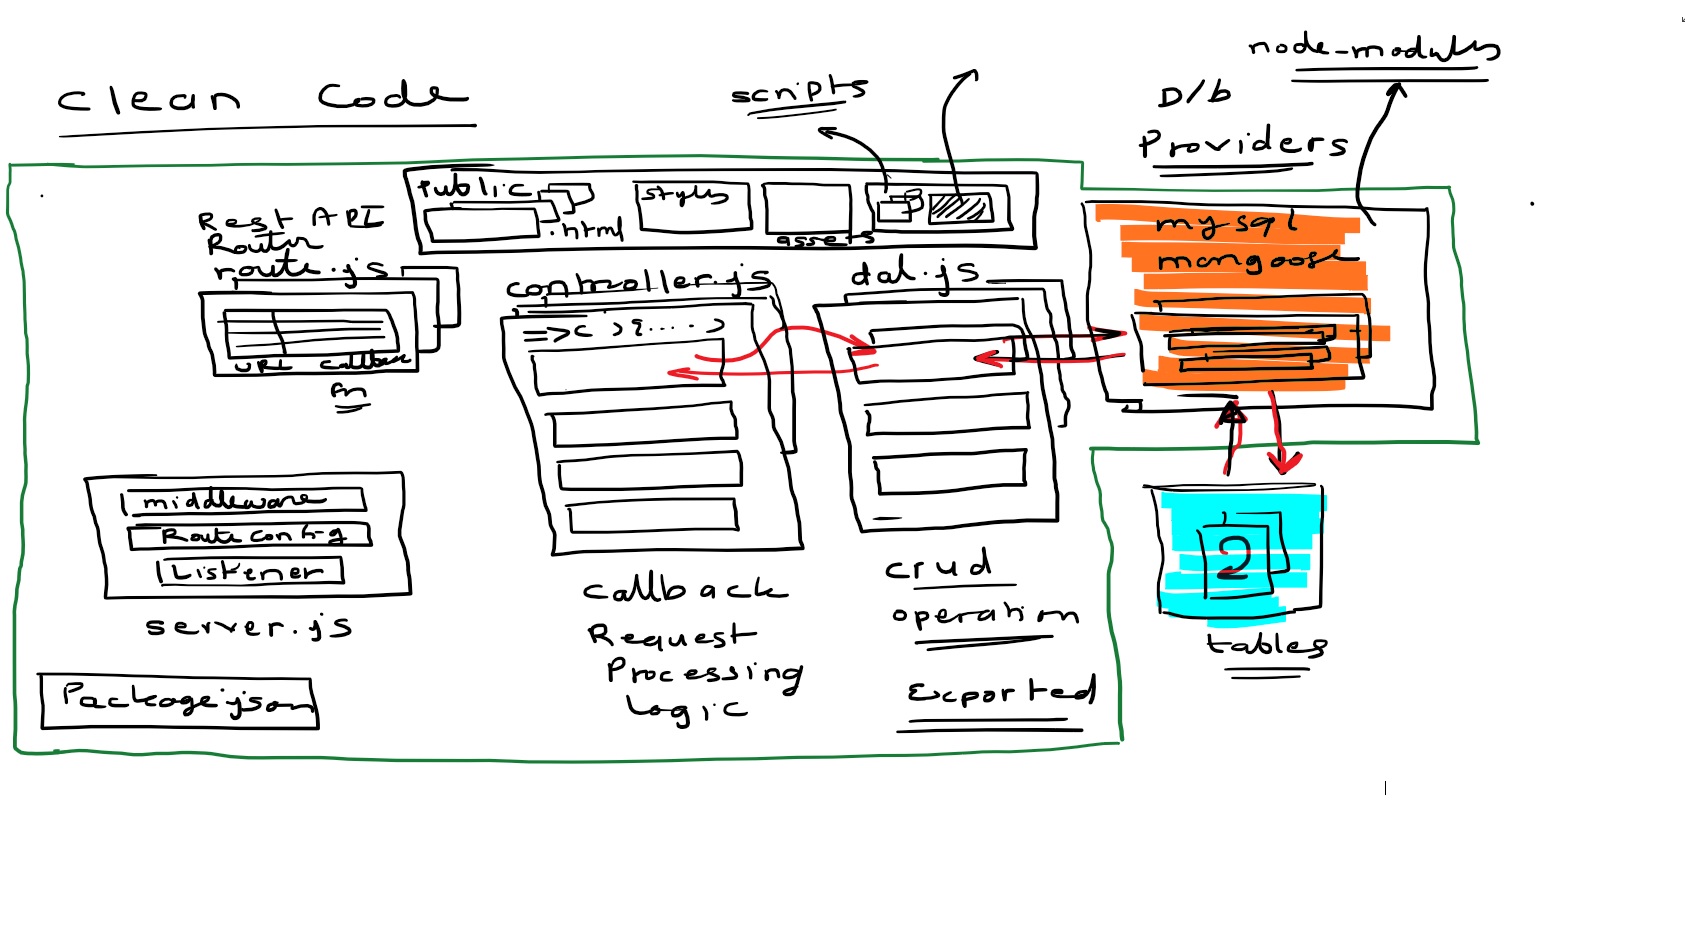 clean Code
scripts
node-modules
D/b
Providers
Public
.html
styles
assets
Rest API
Router
route.js
URL callback
fn
controller.js
=>( ){.... }
dal.js
mysql
mongoose
middleware
Route config
Listener
server.js
Package.json
callback
Request
Processing
Logic
crud
operation
Exported
tables